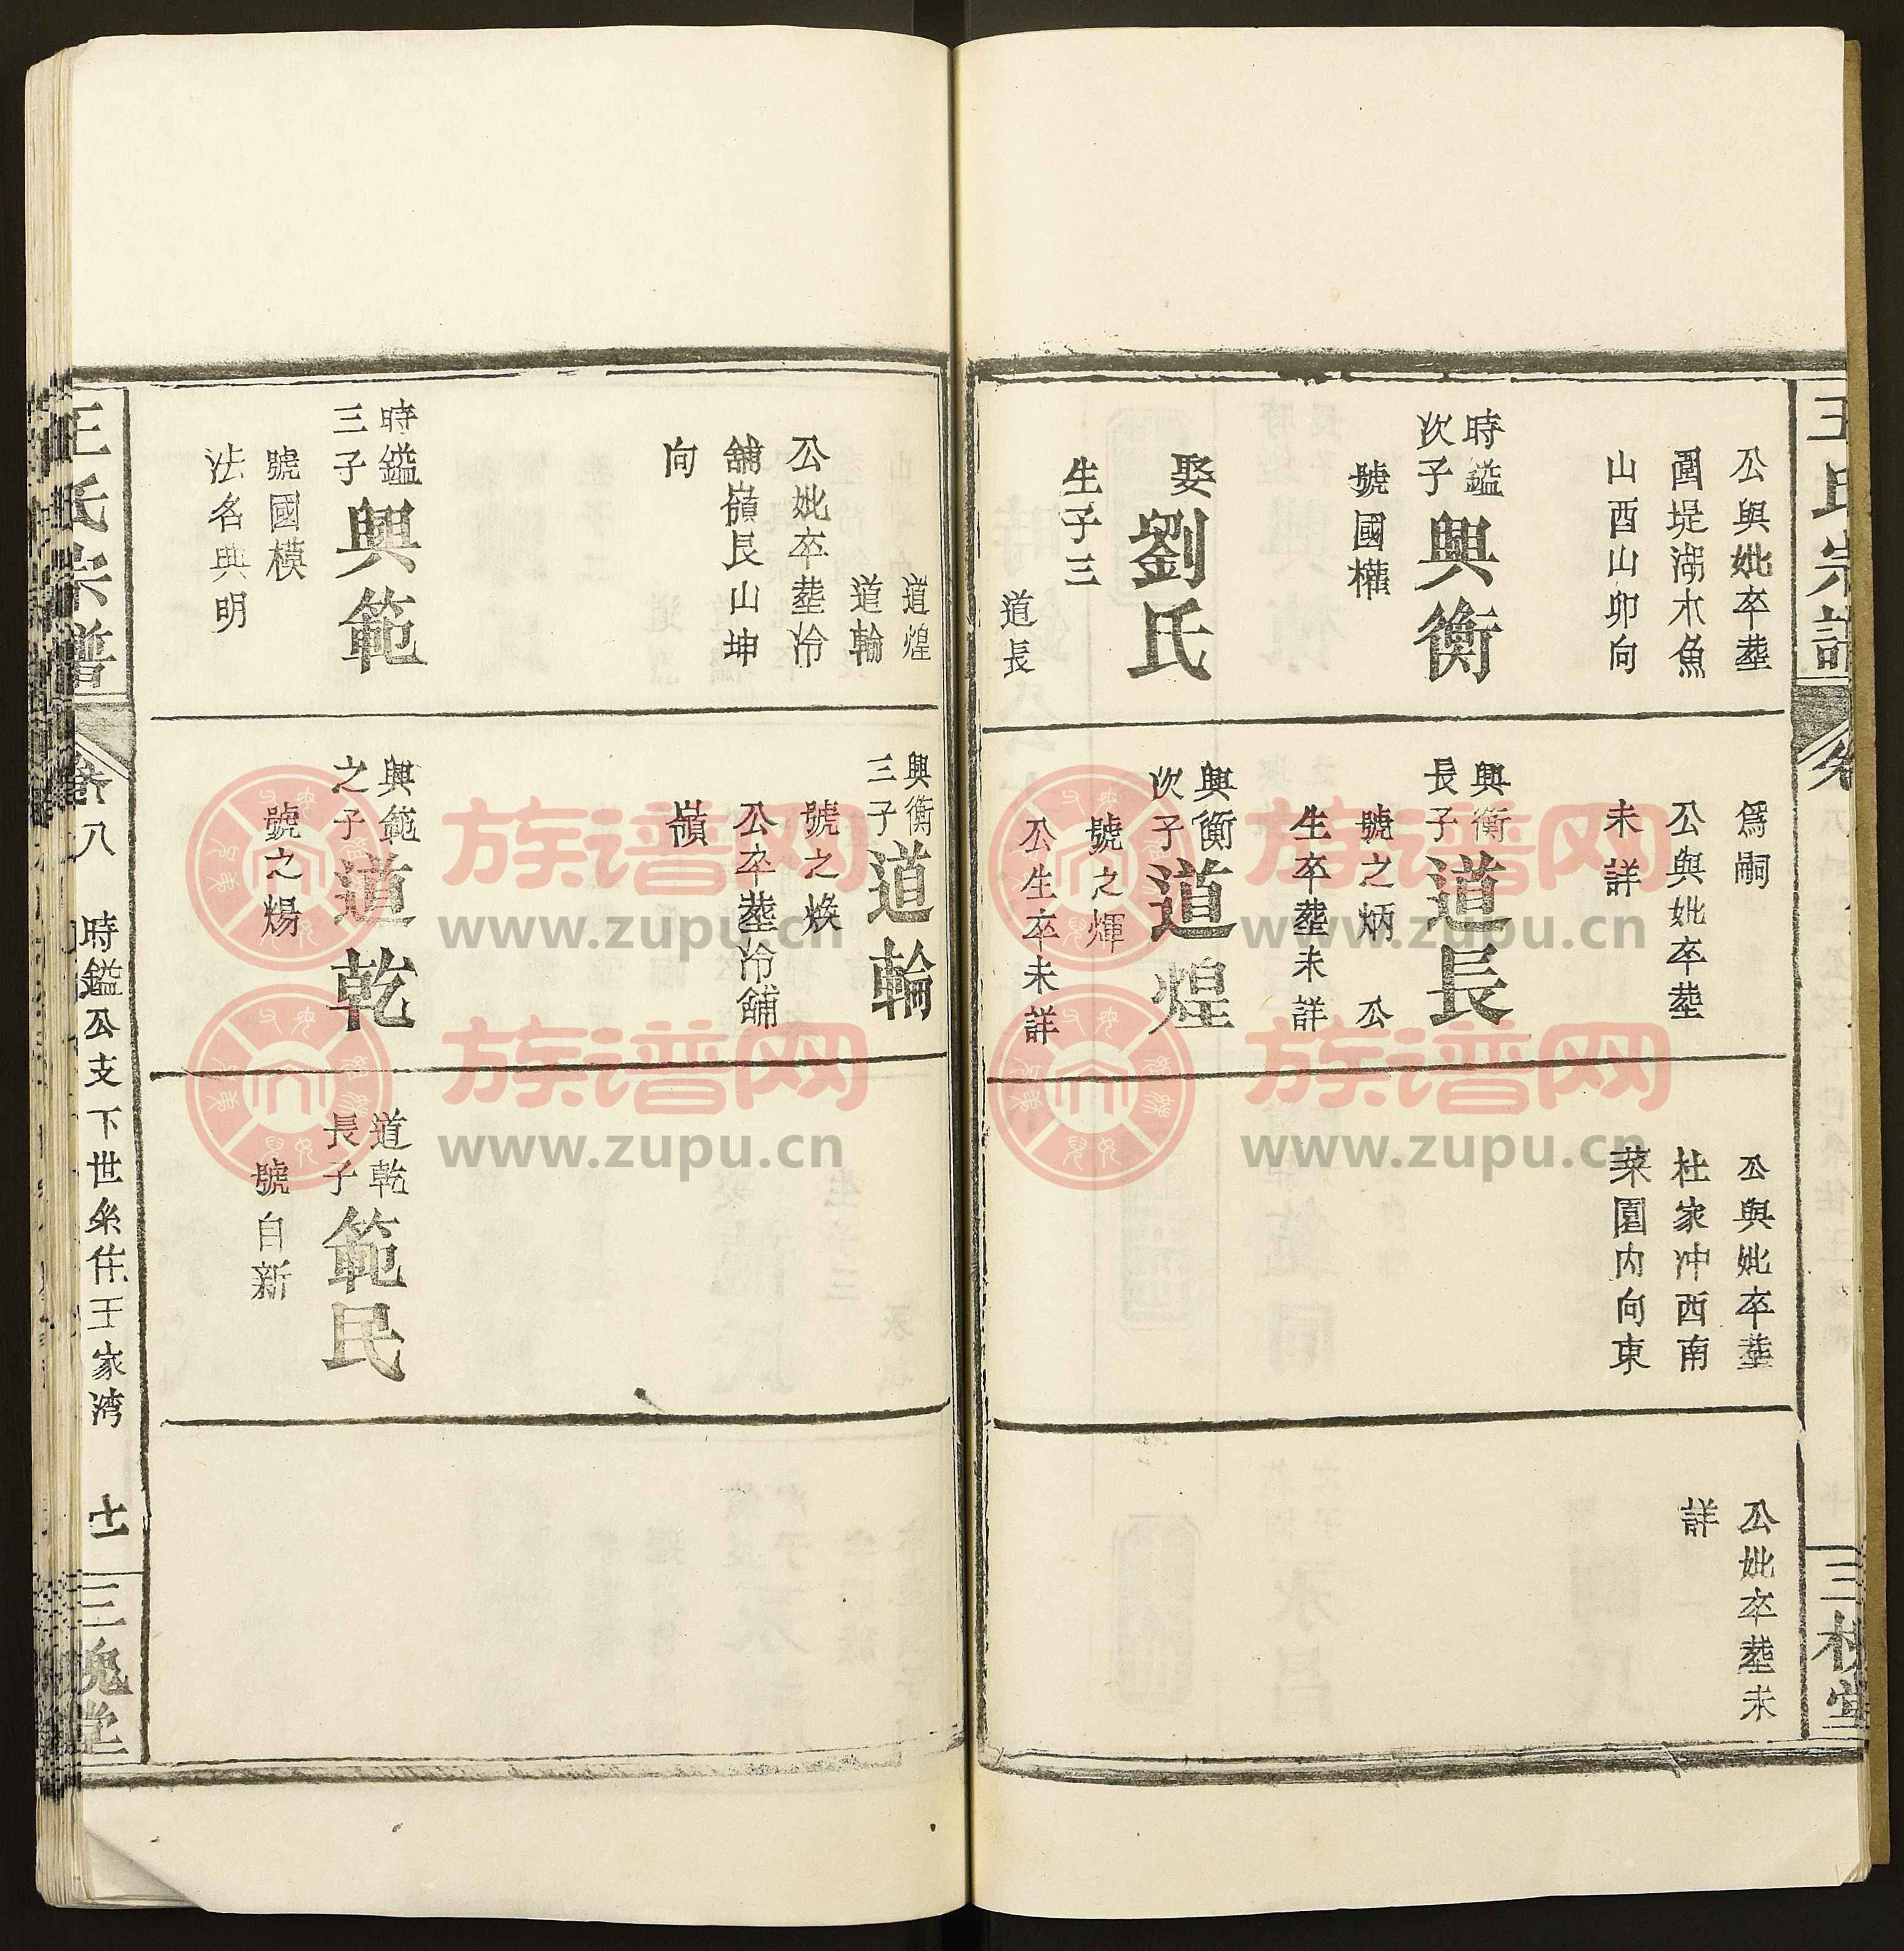 王氏宗譜
三槐堂
公與妣卒塟
圍堤湖木魚
山酉山卯向
時鎰
次子
興衡
號國權
娶
劉氏
生子三
道長
爲嗣
公與妣卒塟
未詳
興衡
長子
道長
號之炳 公
生卒塟未詳
興衡
次子
道煌
號之煇
公生卒未詳
公與妣卒塟
杜家冲西南
菜園内向東
公妣卒塟未
詳
道煌
道輪
公妣卒塟冷
舖嶺艮山坤
向
時鎰
三子
興範
號國模
法名典明
興衡
三子
道輪
號之焕
公卒塟冷舖
嶺
興範
之子
道乾
號之煬
道乾
長子
範民
號自新
王氏宗譜
卷八
時鎰公支下世系住王家湾
十一
三槐堂
族谱网
www.zupu.cn
族谱网
www.zupu.cn
族谱网
www.zupu.cn
族谱网
www.zupu.cn